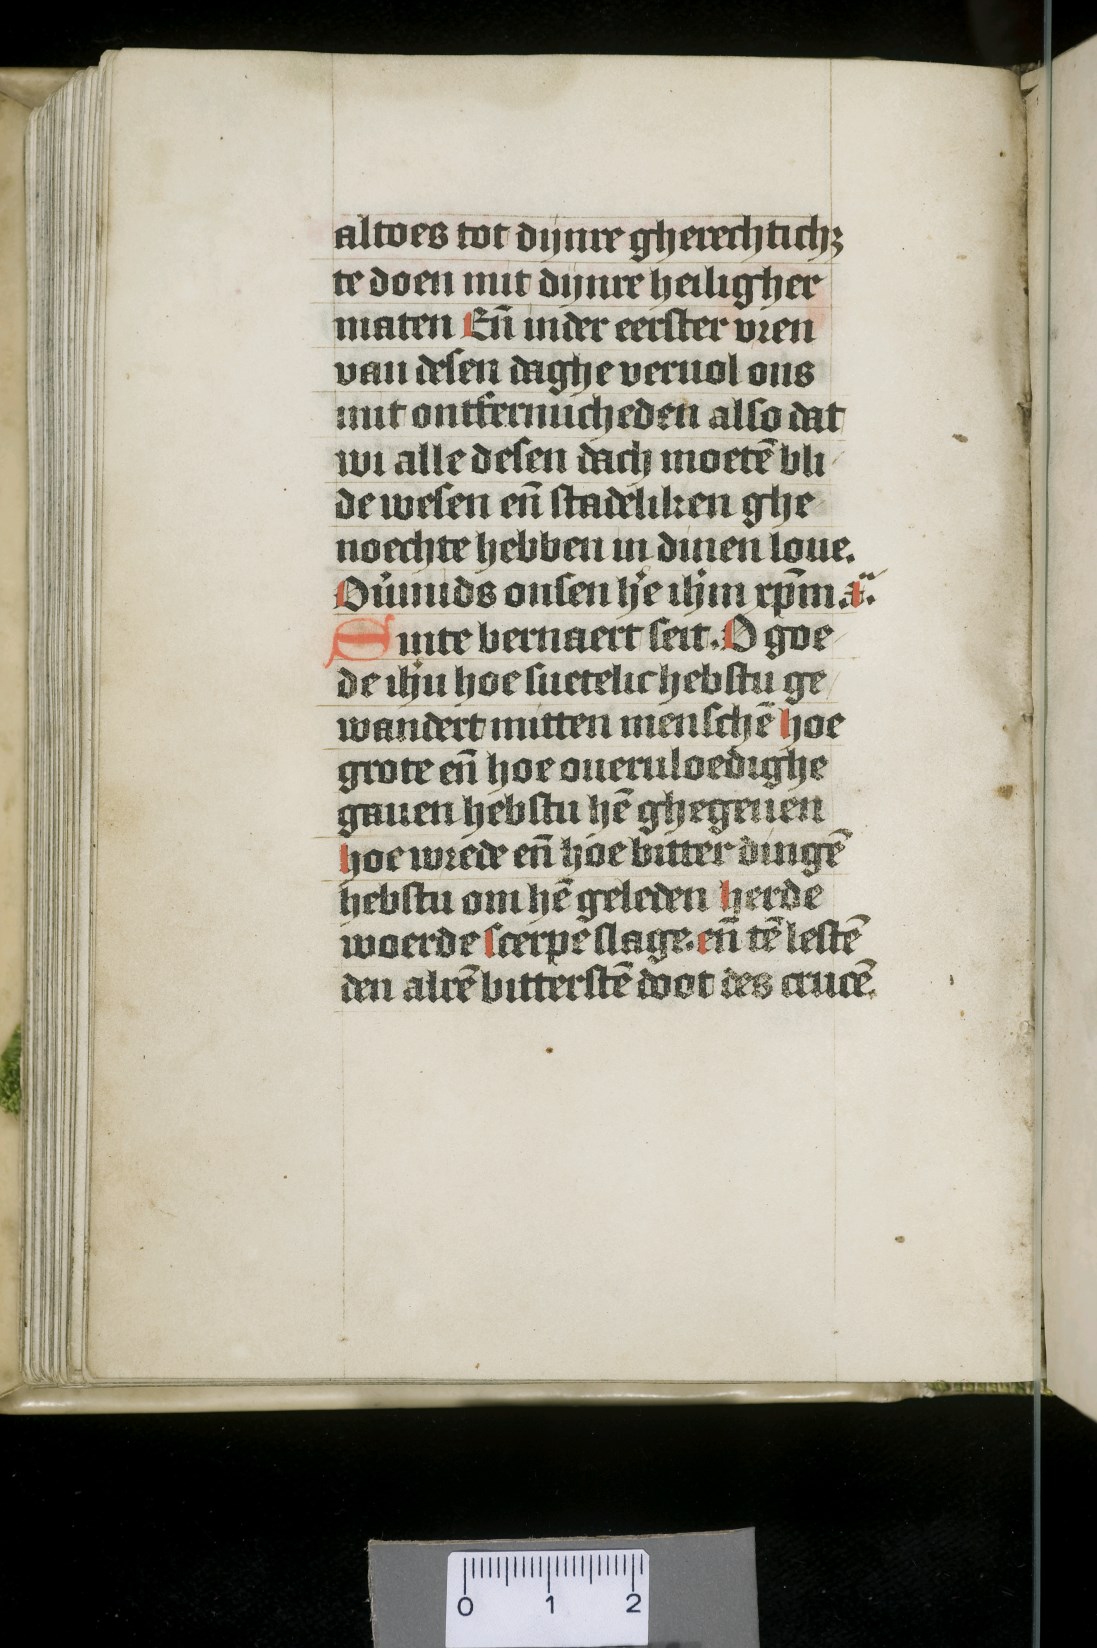 altoes tot dijnre gherechtichꝫ
te doen mit dijnre heiligher
maten En̄ inder eerster vren
van desen daghe veruol ons
mit ontfermicheden also dat
wi alle desen dach moetē bli
de wesen en̄ stadeliken ghe
noechte hebben in dinen loue.
Ouimids onsen he ihm xp̄m. a.
Sinte bernaert seit. O goe
de ihu hoe suetelic hebstu ge
wandert mitten menschē hoe
grote en̄ hoe oueruloedighe
gauen hebstu hē ghegeuen
hoe wrede en̄ hoe bitter dingē
hebstu om hē geleden herde
woerde scerpe slage. en̄ tē lestē
den alrē bitterstē doot des crucē.
0 1 2